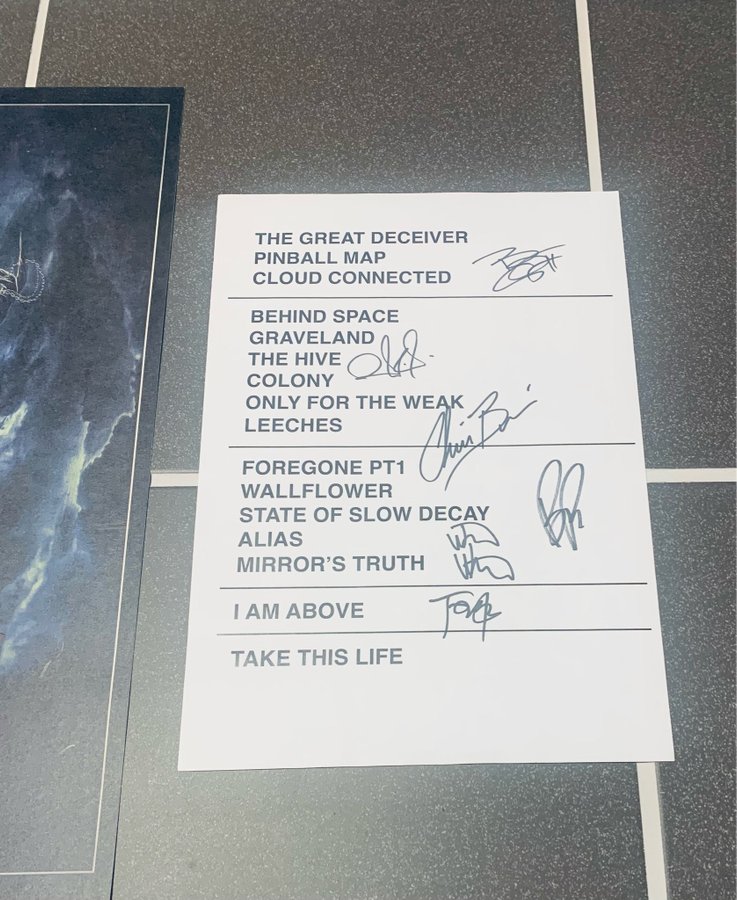 THE GREAT DECEIVER
PINBALL MAP
CLOUD CONNECTED
BEHIND SPACE
GRAVELAND
THE HIVE
COLONY
ONLY FOR THE WEAK
LEECHES
FOREGONE PT1
WALLFLOWER
STATE OF SLOW DECAY
ALIAS
MIRROR'S TRUTH
I AM ABOVE
TAKE THIS LIFE